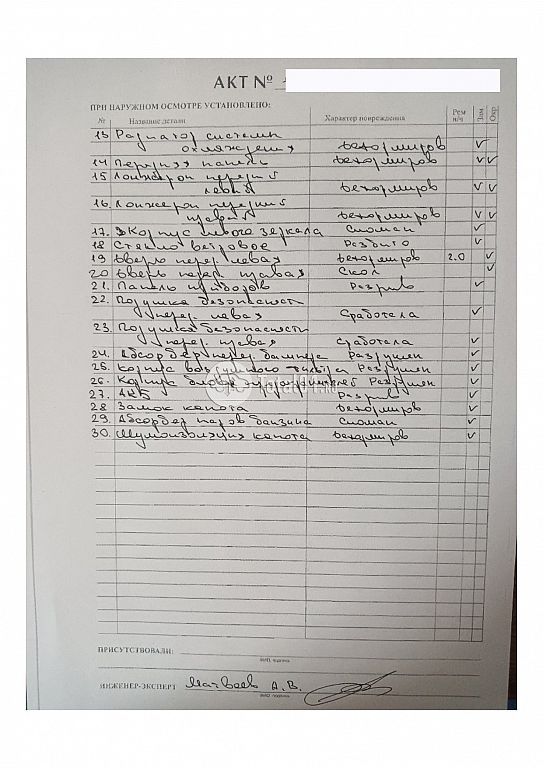 АКТ №
ПРИ НАРУЖНОМ ОСМОТРЕ УСТАНОВЛЕНО:
№ Название детали Характер повреждения Рем н/ч Зам Окр
13 Радиатор системы
охлаждения Деформиров ✓
14 Передняя панель Деформиров ✓ ✓
15 Лонжерон передний
левый Деформиров ✓ ✓
16. Лонжерон передний
правый Деформиров ✓ ✓
17. Корпус левого зеркала Сломан ✓
18 Стекло ветровое Разбито ✓
19 Дверь перед. левая Деформиров 2.0 ✓
20 Дверь перед. правая Скол ✓
21. Панель приборов Разрыв ✓
22. Подушка безопасности
перед. левая Сработала ✓
23. Подушка безопасности
перед. правая Сработала ✓
24. Абсорбер перед. бампера Разрушен ✓
25. Корпус воздушного фильтра Разрушен ✓
26. Корпус блока предохранителей Разрушен ✓
27. АКБ Разрыв ✓
28 Замок капота Деформиров ✓
29. Абсорбер паров бензина Сломан ✓
30. Шумоизоляция капота Деформиров ✓
ПРИСУТСТВОВАЛИ:
ФИО, подпись
ИНЖЕНЕР-ЭКСПЕРТ Матвеев А.В.
ФИО, подпись